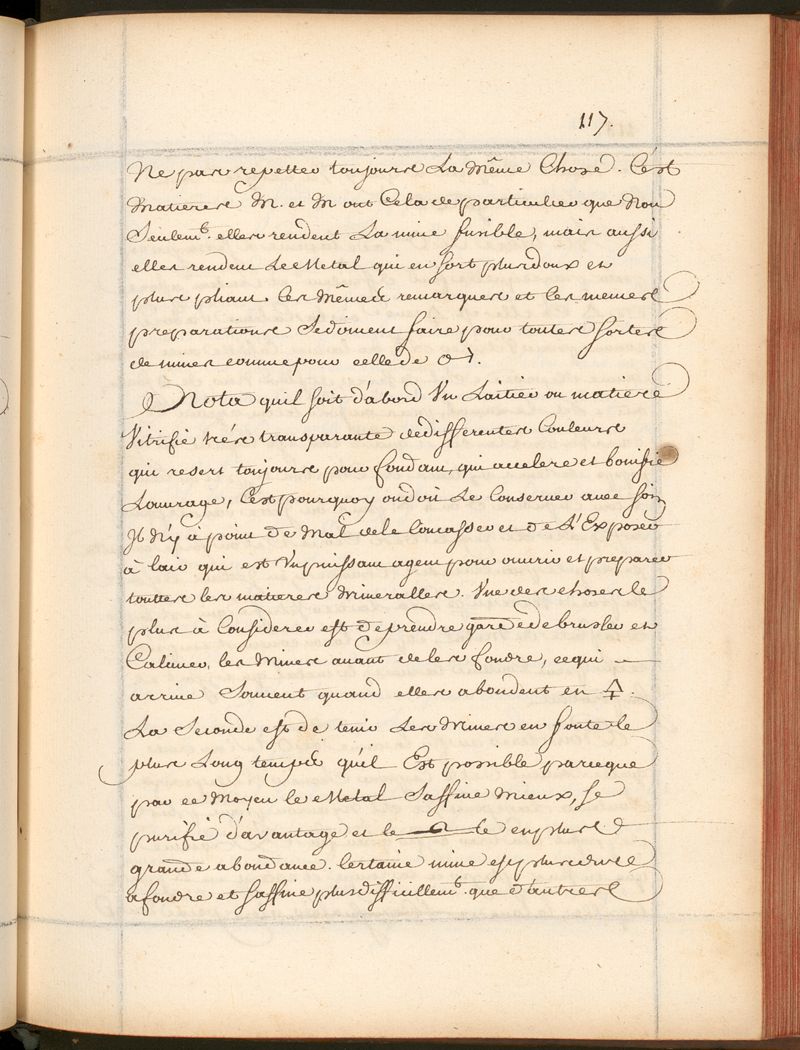 117.
Ne pas repetter toujours La même Chose. C'est
Matieres M. et M ont Cela de particulier que Non
Seulem.t elles rendent La mine fusible, mais aussi
elles rendent Le Metal qui en sort plus doux et
plus pliant. Les Mêmes remarques et les memes
preparations Se doivent faire pour toutes sortes
de mines comme pour celle de ♂.
Nota quil soit d'abord Vn Laitier ou matiere
Vitrifié trés transparante de differentes Couleurs
qui resert toujours pour fondant, qui accelere et bonifie
Louvrage, C'est pourquoy on doit Le Conserver avec soin
Il n'y à point de Mal de le Concasser et de L'Exposer
à lair qui est Vn puissant agent pour ouvrir et preparer
touttes les matieres Mineralles. Vne des choses le
plus à Considerer est de prendre garde de brusler et
Calciner les Mines avant de les fondre, ce qui
arrive Souvent quand elles abondent en 🜍.
La Seconde est de tenir Les Mines en fonte le
plus Long temps qu'il Est possible parceque
par ce Moyen le Metal Saffine Mieux, se
purifie d'avantage et le en plus
grande abondance. Certaine mine est plus dure
a fondre et saffine plus difficillem.t que d'autres